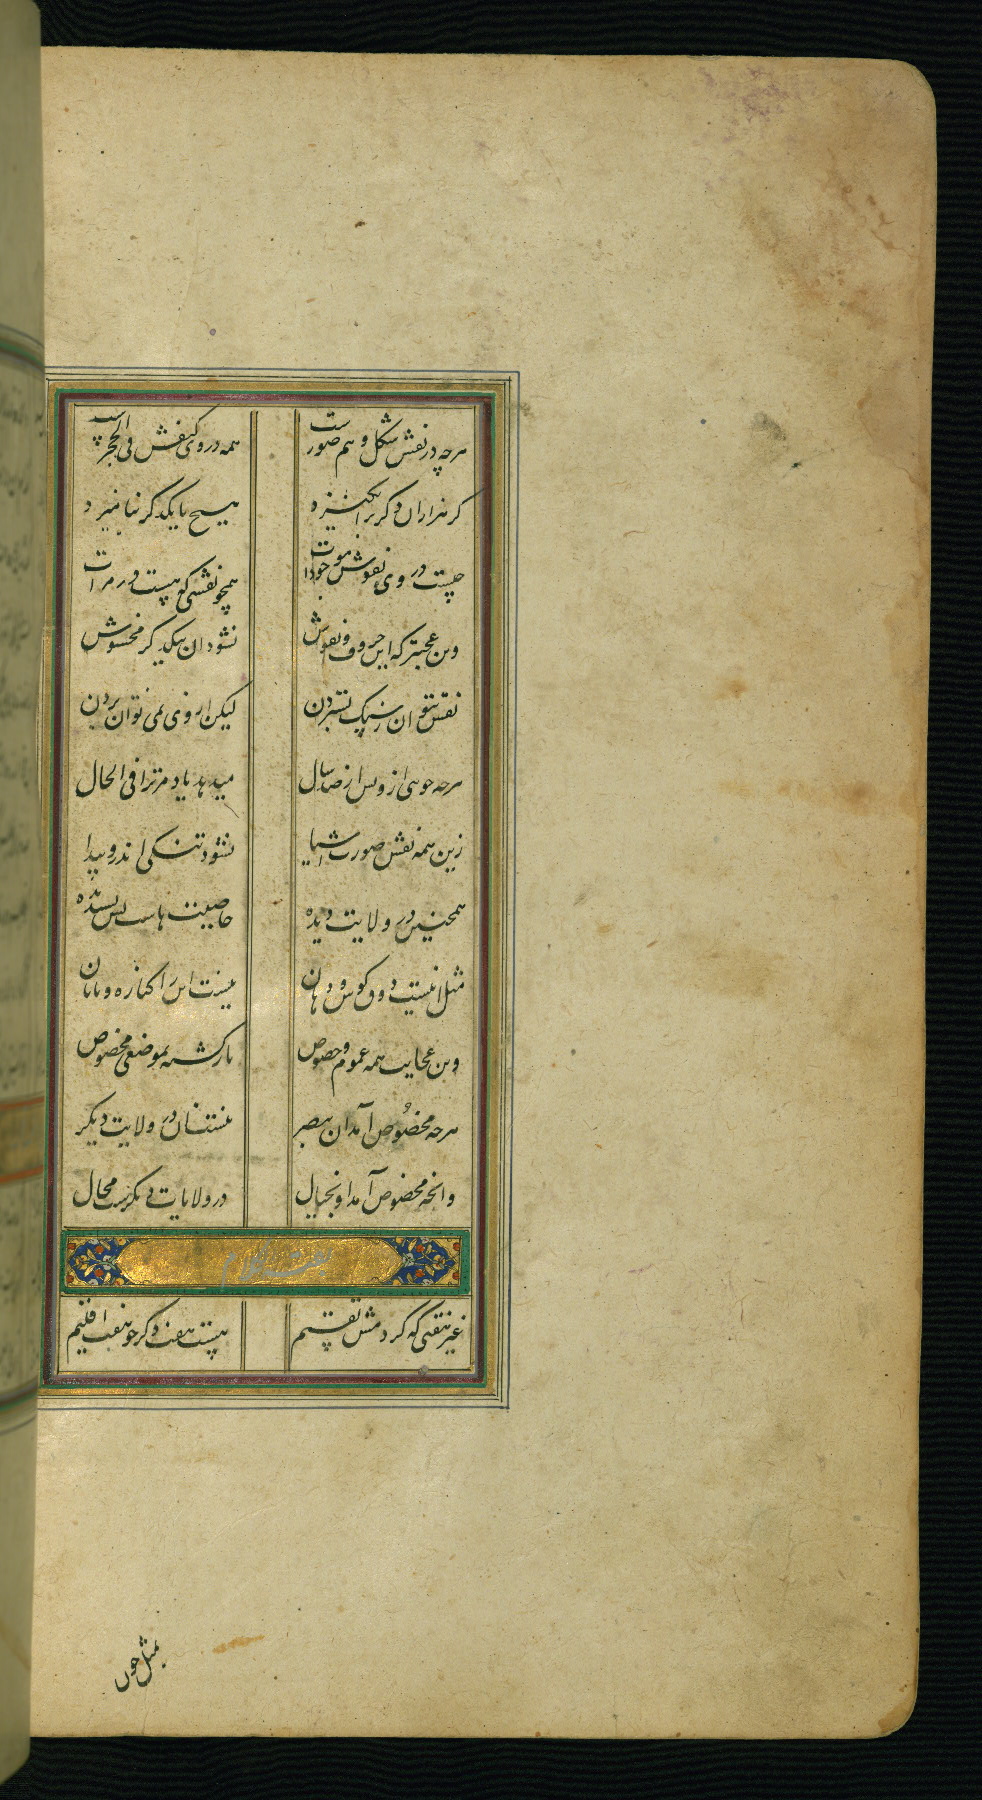 هرچه در نقش شکل و هم صورت است همه در وی کنقش فی الحجر
گر هزاران دگر برانگیزد هیچ با یکدگر نیامیزد
چیست در وی نقوش موجودات همچو نقشی که هست در مرآت
وین عجبتر که این حروف و نقوش نشود ان بیکدیگر مخشوش
نقش نتوان ز سنگ بستردن لیکن از وی نمی توان بردن
هرچه جوهی ازو پس از صد سال میدهد یاد مر ترا فی الحال
زین همه نقش صورت اشیا نشود تنکی اندرو پیدا
همچنین در ولایت دیده خاصیت هاست بس پسندیده
مثل اینست ذوق گوش و دهان نیست این را کناره و پایان
وین عجایب همه عموم و خصوص بازگشته بموضعی مخصوص
هرچه مخصوص آمد آن ببصر نیستشان در ولایت دیگر
وانچه مخصوص آمد او بخیال در ولایات دیگرست محال
غیر نقشی که کردمش تقسیم هست هفت دگر چو هفت اقلیم
مثل چون